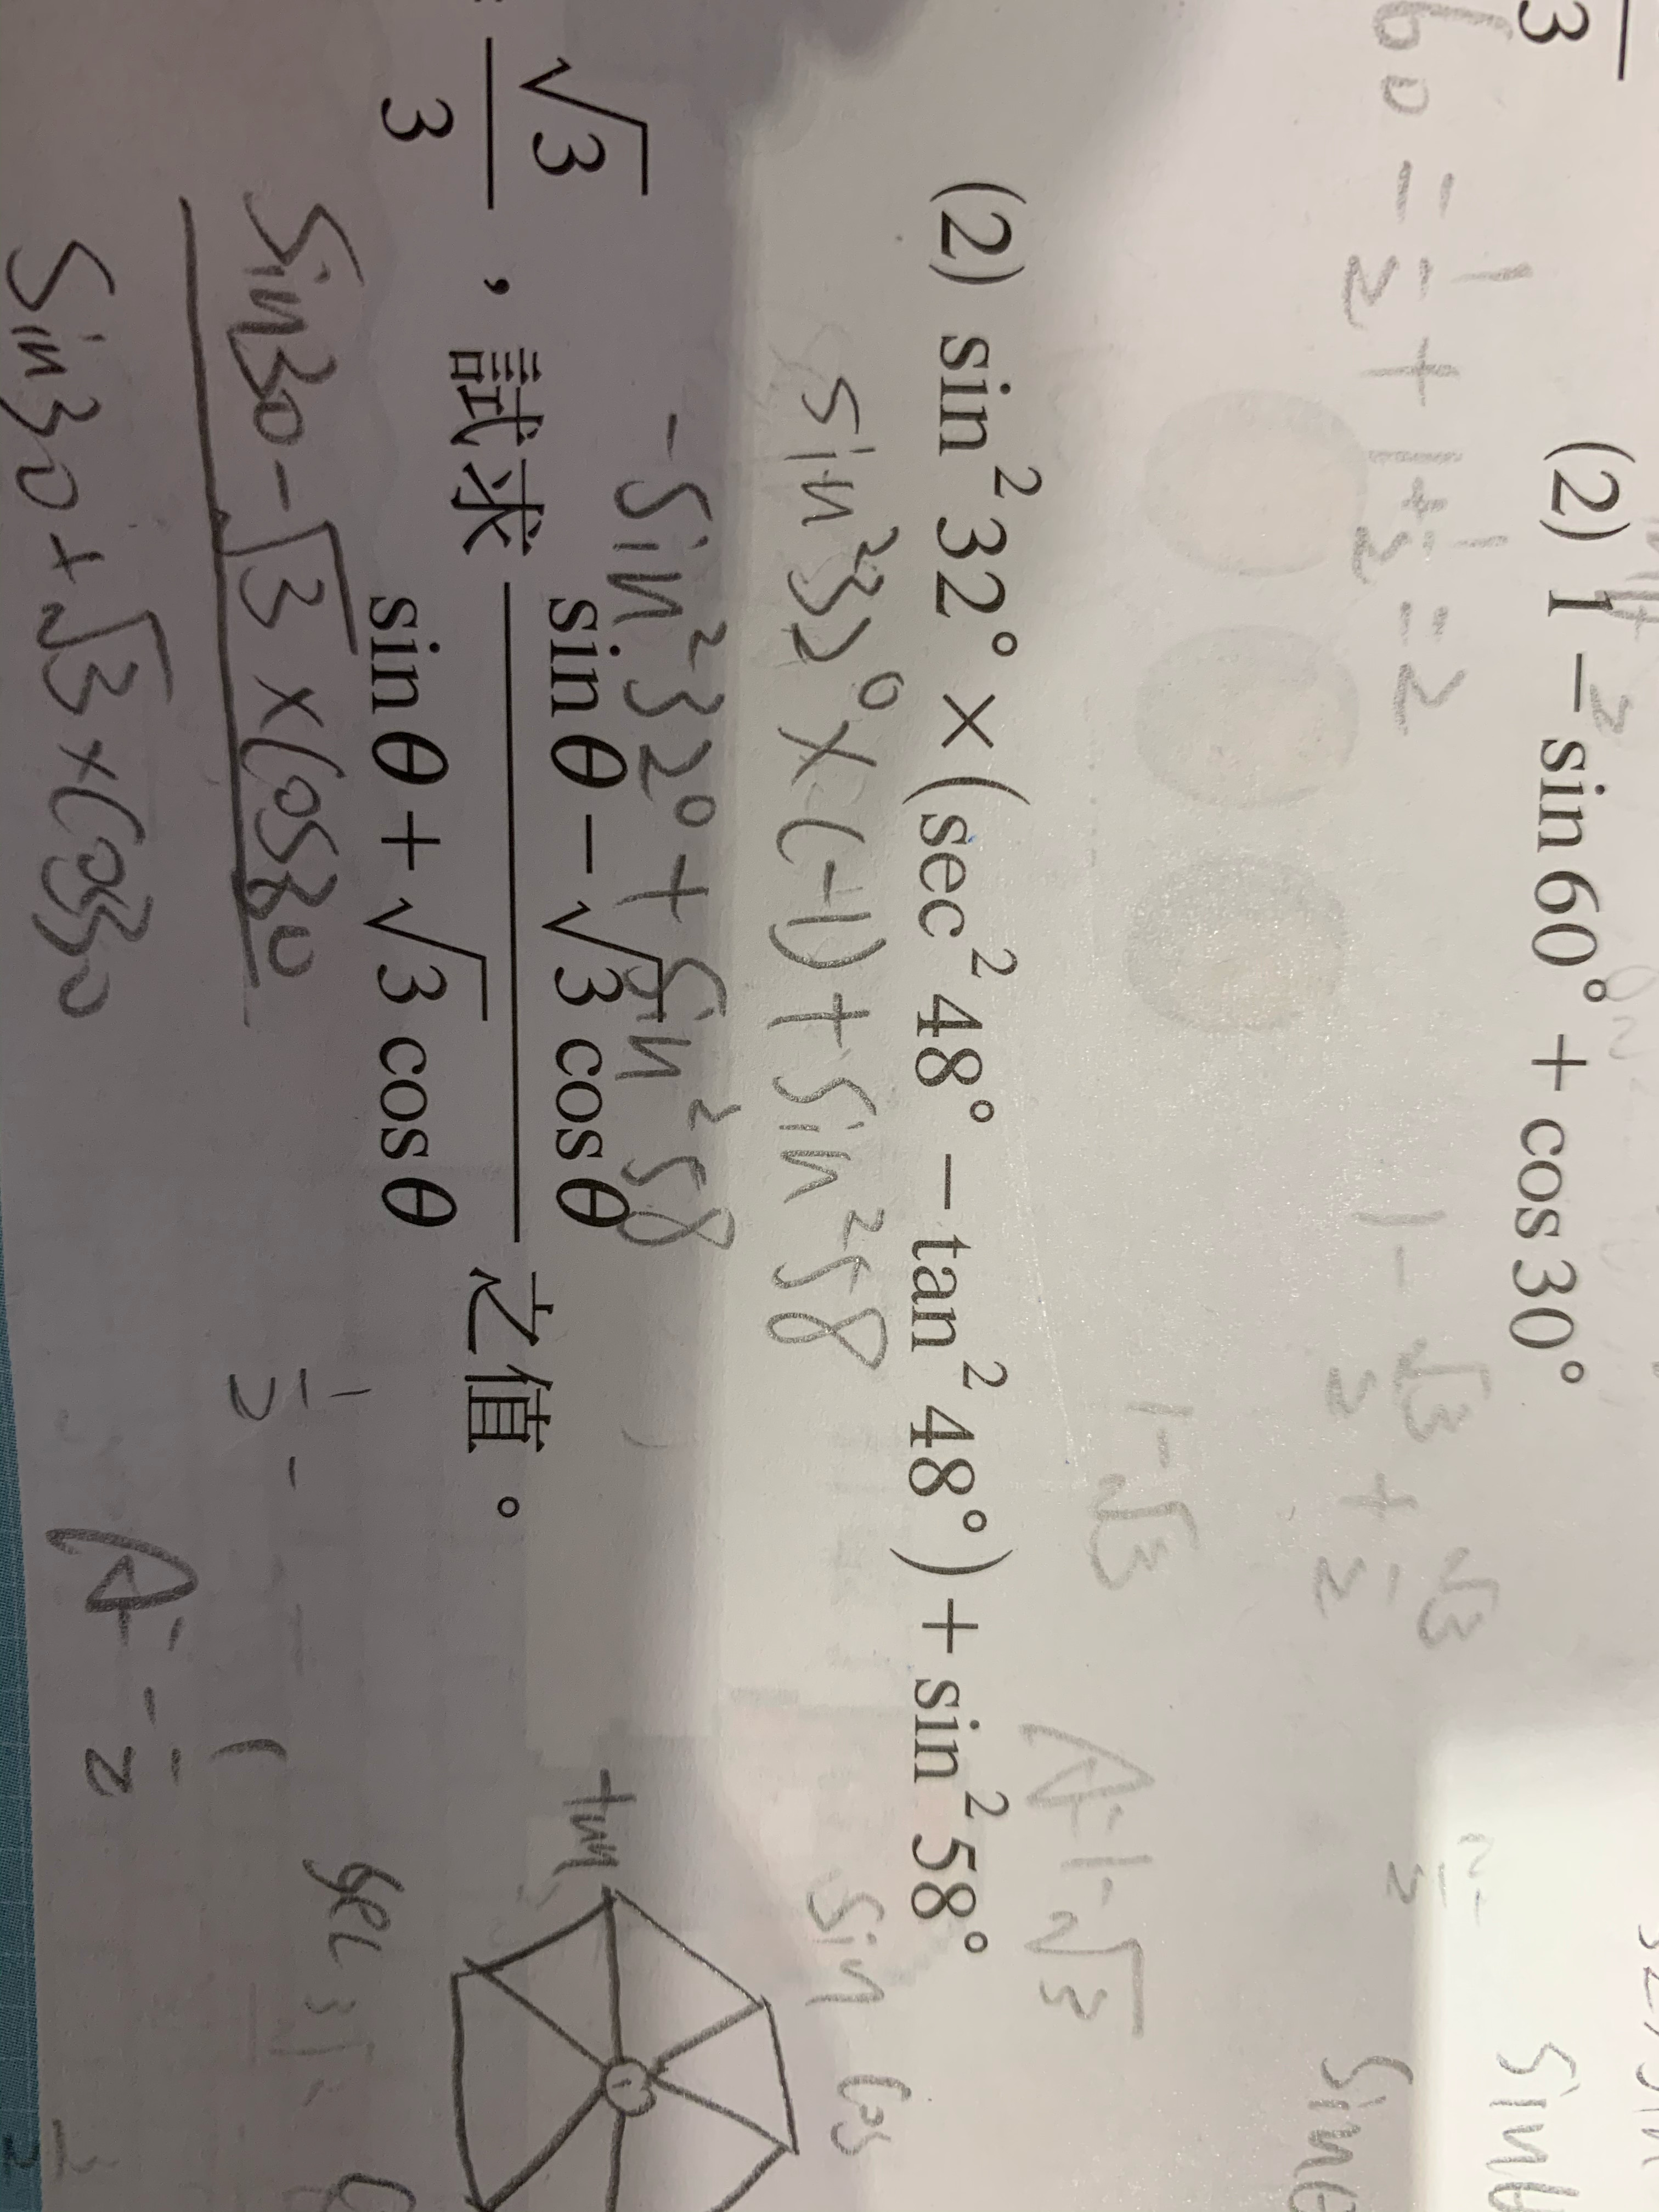 3
60 = 1/2 + 1 + 1/2 = 2
(2) 1 − sin 60° + cos 30°
1 - √3/2 + √3/2
1-√3
A:1-√3
(2) sin²32° × (sec²48° − tan²48°) + sin²58°
sin²32° × (-1) + sin²58
-sin²32° + sin²58
√3/3，試求 (sin θ − √3 cos θ)/(sin θ + √3 cos θ) 之值。
sin30 - √3 × cos30
sin30 + √3 × cos30
A: -1/2
sin cos
tan
1
sec
sinθ